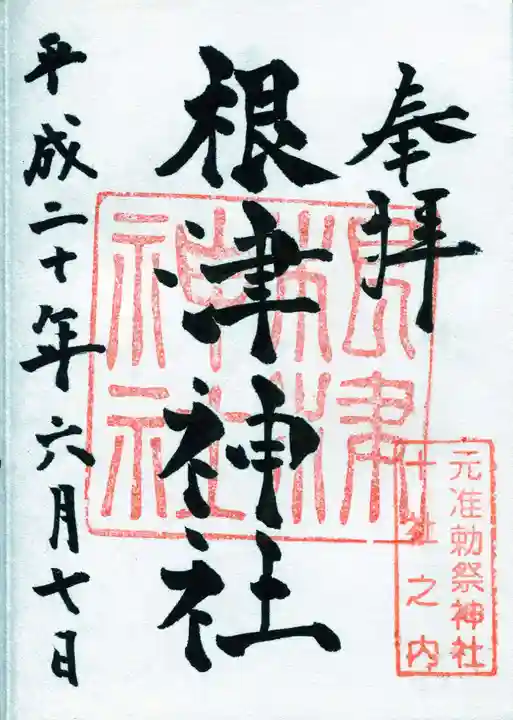 奉拝
元准勅祭神社
十社之内
根津神社
根津
神社
平成二十年六月七日